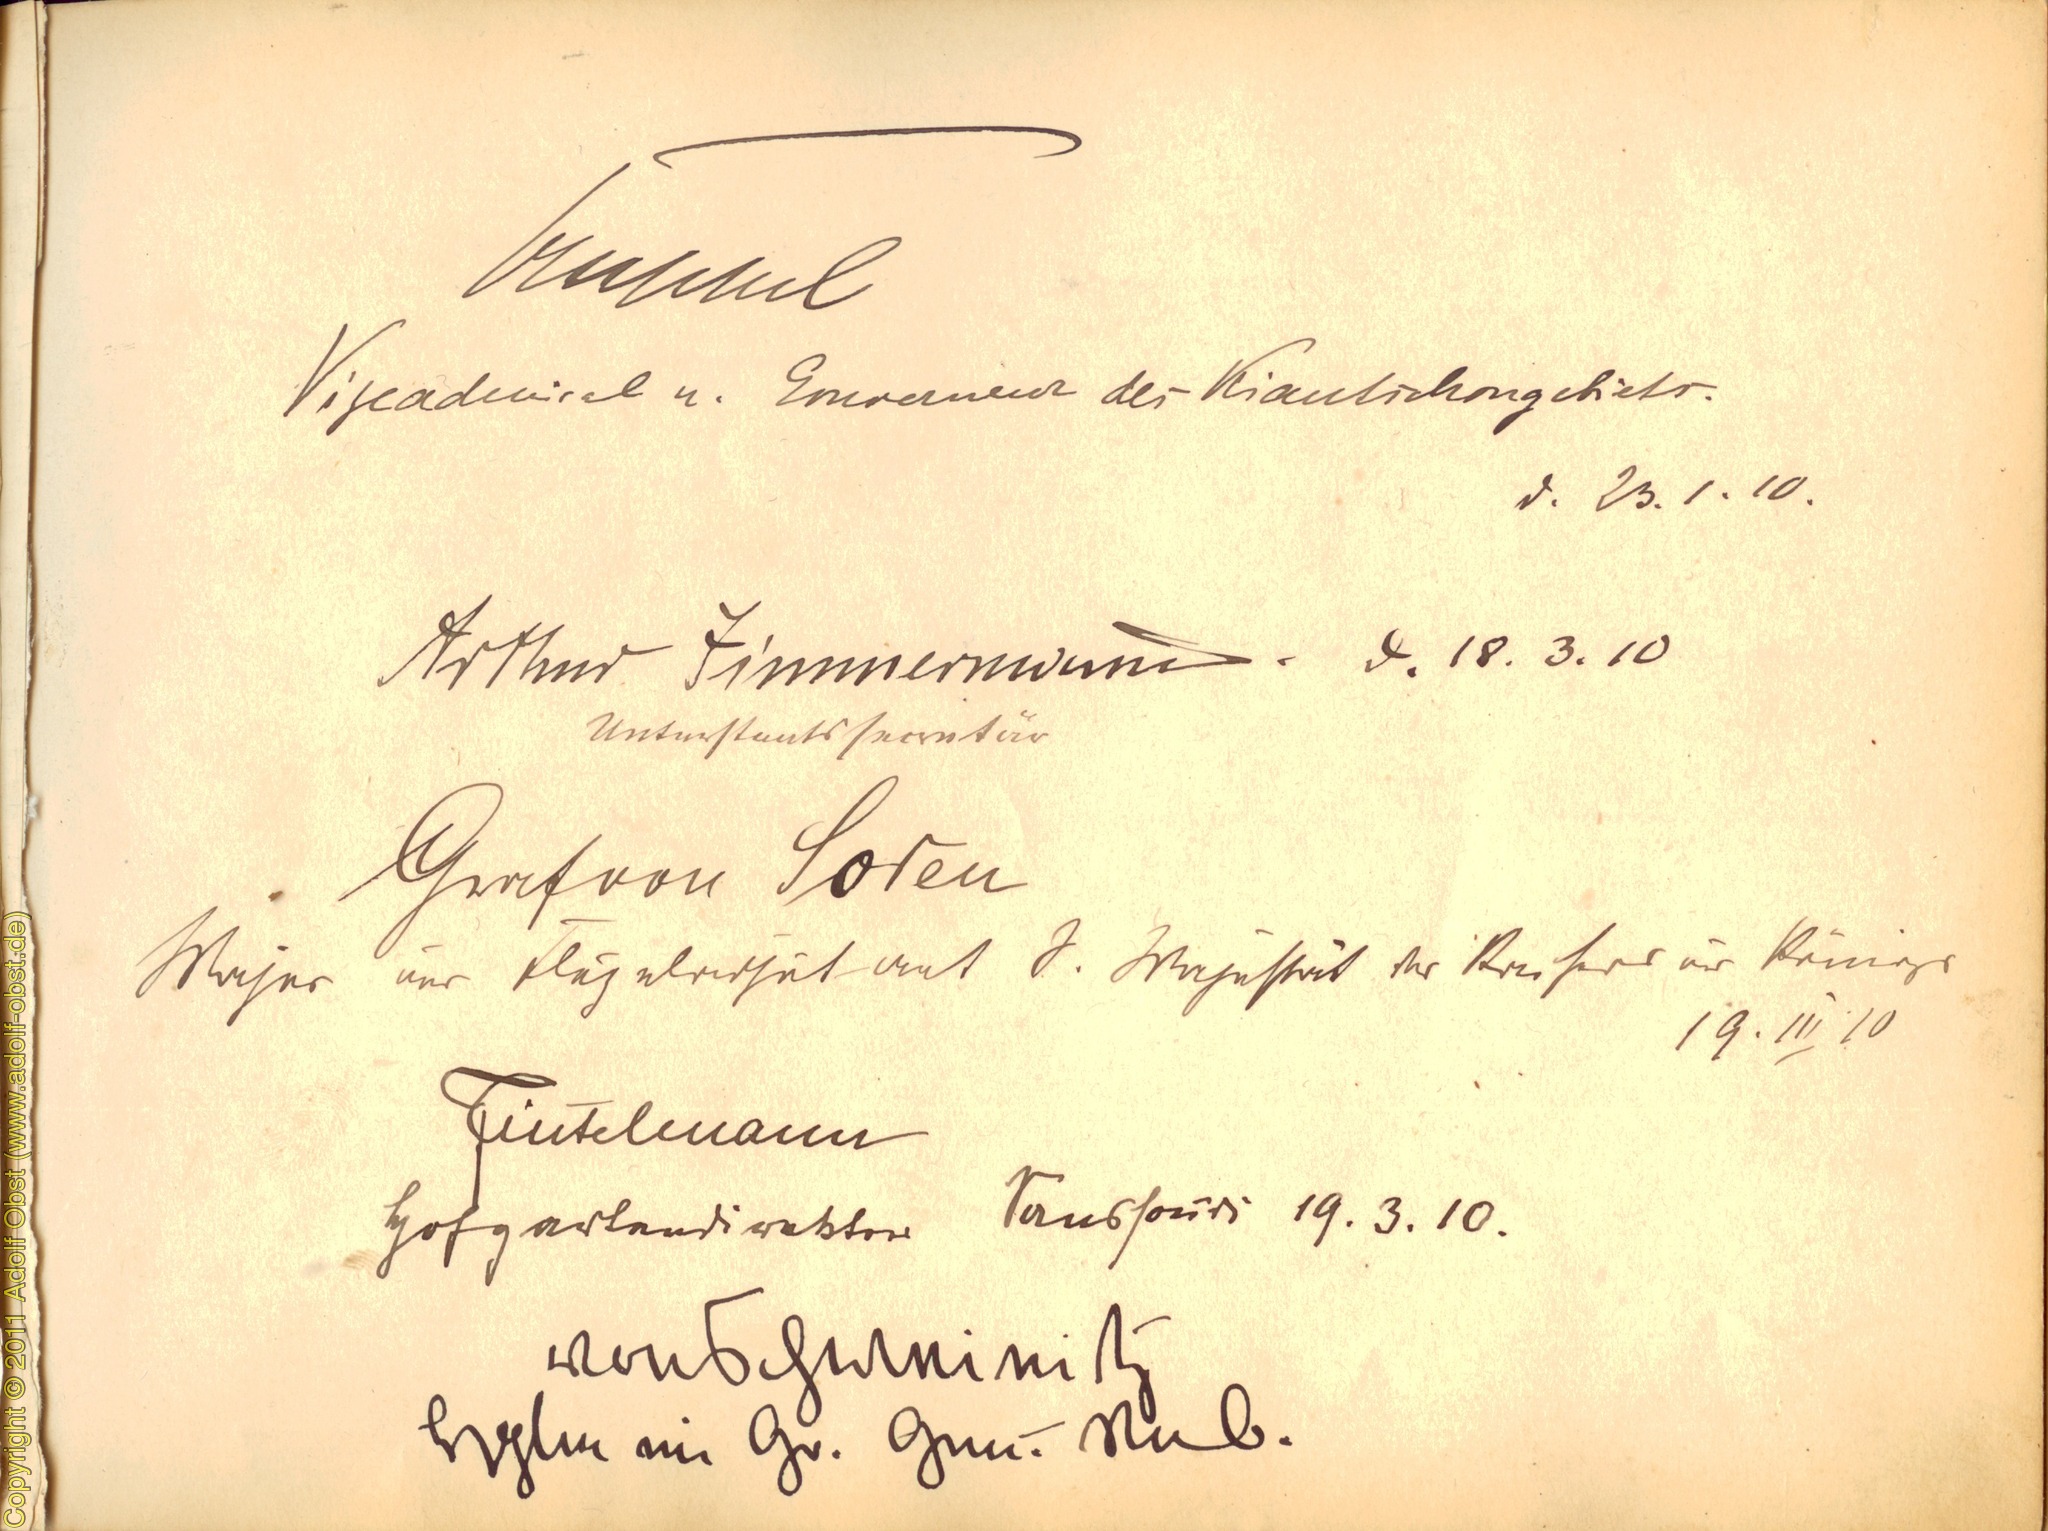 Truppel
Vizeadmiral u. Gouverneur des Kiautschougebiets.
d. 23. 1. 10.
Arthur Zimmermann. d. 18. 3. 10
Unterstaatssecretär
Graf von Soden
Major und Flügeladjutant S. Majestät des Kaisers und Königs
19. III 10
Fintelmann
Hofgartendirektor Sanssouci 19. 3. 10.
von Schweinitz
Hptm im Gr. Gen.
Copyright © 2011 Adolf Obst (www.adolf-obst.de)